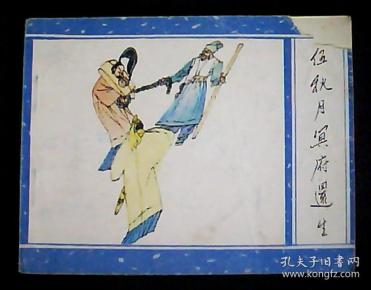 伍秋月冥府還生
孔夫子旧书网
www.kongfz.com